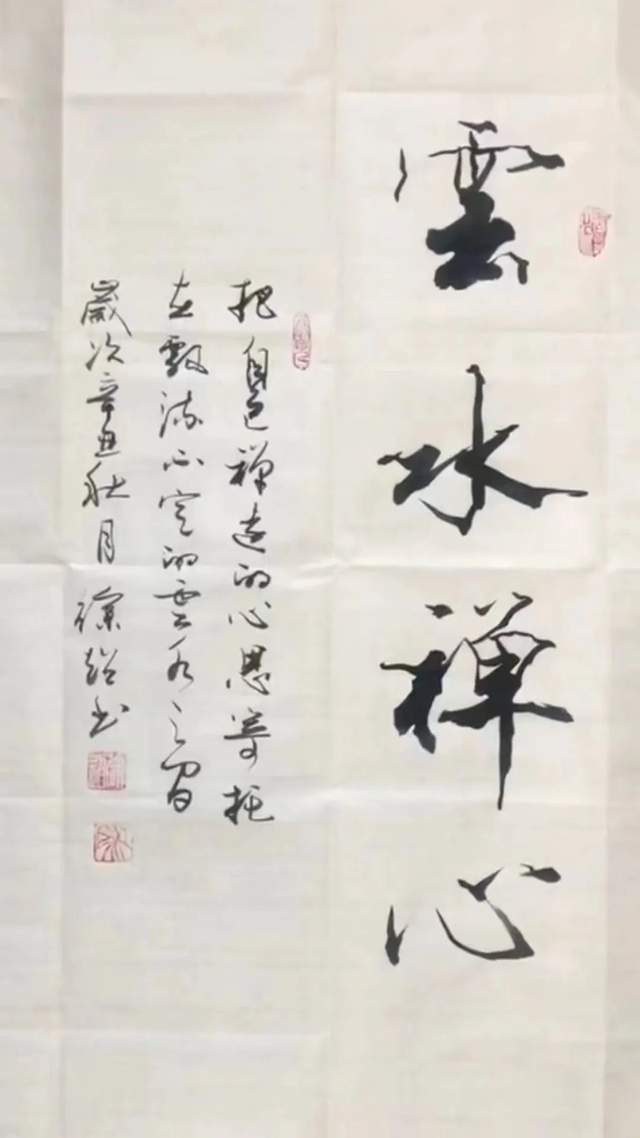 雲水禪心
把自己禪造的心思寄托
在飄流不定的雲水之間
歲次辛丑秋月 徐 書